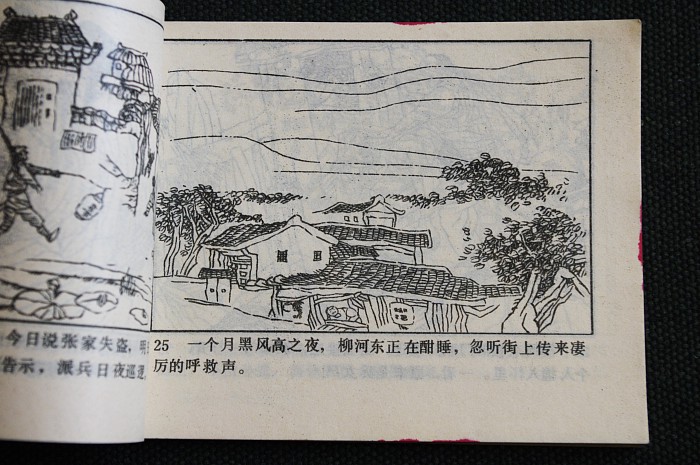 今日说张家失盗，明
告示，派兵日夜巡逻
25 一个月黑风高之夜，柳河东正在酣睡，忽听街上传来凄
厉的呼救声。